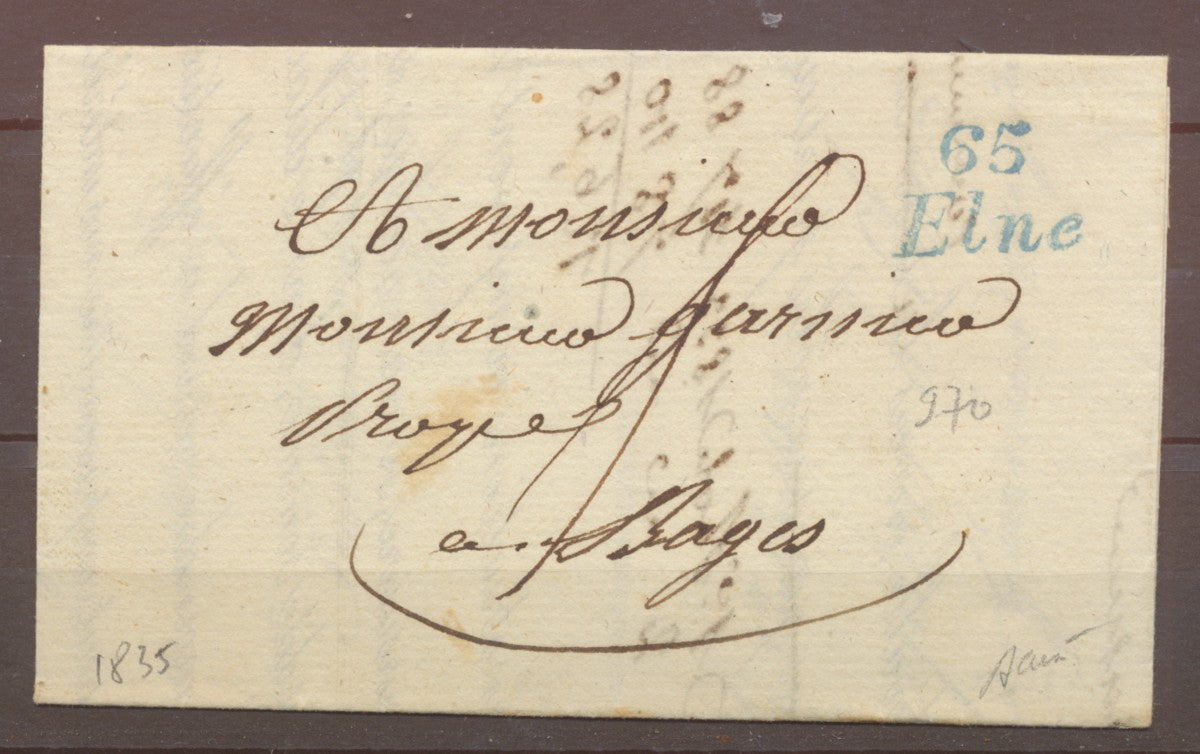 65
Elne
A Monsieur
Monsieur garnier
a Bages
970
1835